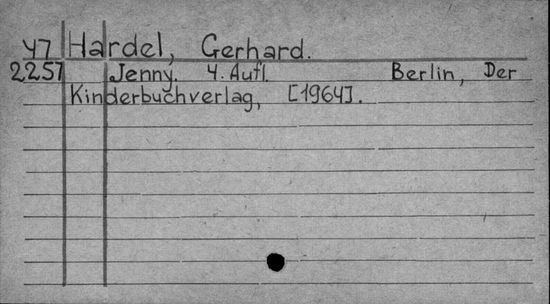 47 Hardel, Gerhard.
2257 Jenny. 4. Aufl. Berlin, Der
Kinderbuchverlag, [1964].